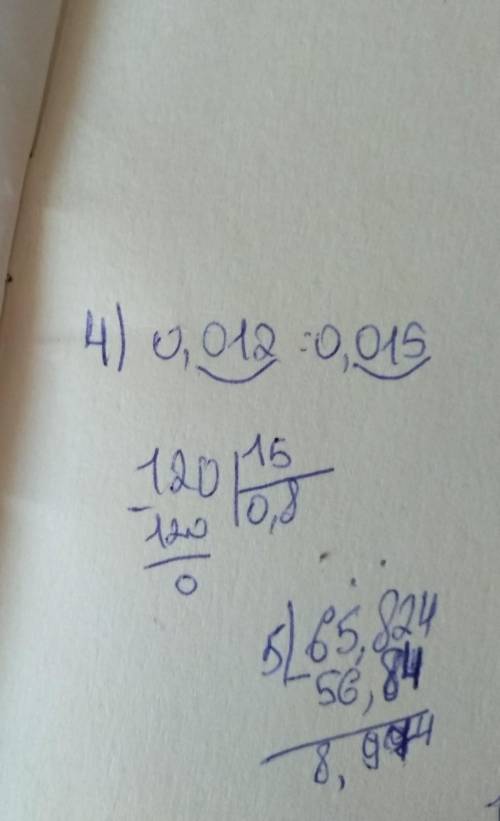 4) 0,012 : 0,015
120 | 15
- 120 | 0,8
0
5) 65,824
- 56,84
8,984